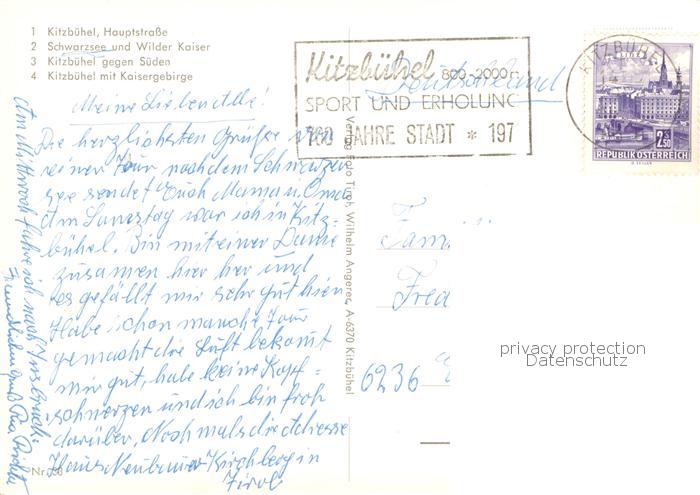 1 Kitzbühel, Hauptstraße
2 Schwarzsee und Wilder Kaiser
3 Kitzbühel gegen Süden
4 Kitzbühel mit Kaisergebirge
Meine Lieben Alle!
Die herzlichsten Grüße von
einer Tour nach dem Schwarzen
see sendet Euch Mama u. Oma
Am Samstag war ich in Kitz-
bühel. Bin mit einer Dame
zusamen hier her und
es gefällt mir sehr gut hier
Habe schon manche Tour
gemacht die Luft bekomt
mir gut, habe keine Kopf=
schmerzen und ich bin froh
darüber, Nochmals die Adresse
Haus Neubauer Kirchberg in
Tirol
Am Mittwoch fahre ich nach Insbruck
Freundlichen Gruß
Nr.
Kitzbühel 800-2000 m
SPORT UND ERHOLUNG
700 JAHRE STADT * 197
KITZBÜHEL
LINZ
2.50
REPUBLIK ÖSTERREICH
Deutschland
Verlag Foto Tirol, Wilhelm Angerer, A-6370 Kitzbühel
Fam
Fred
6236
privacy protection
Datenschutz